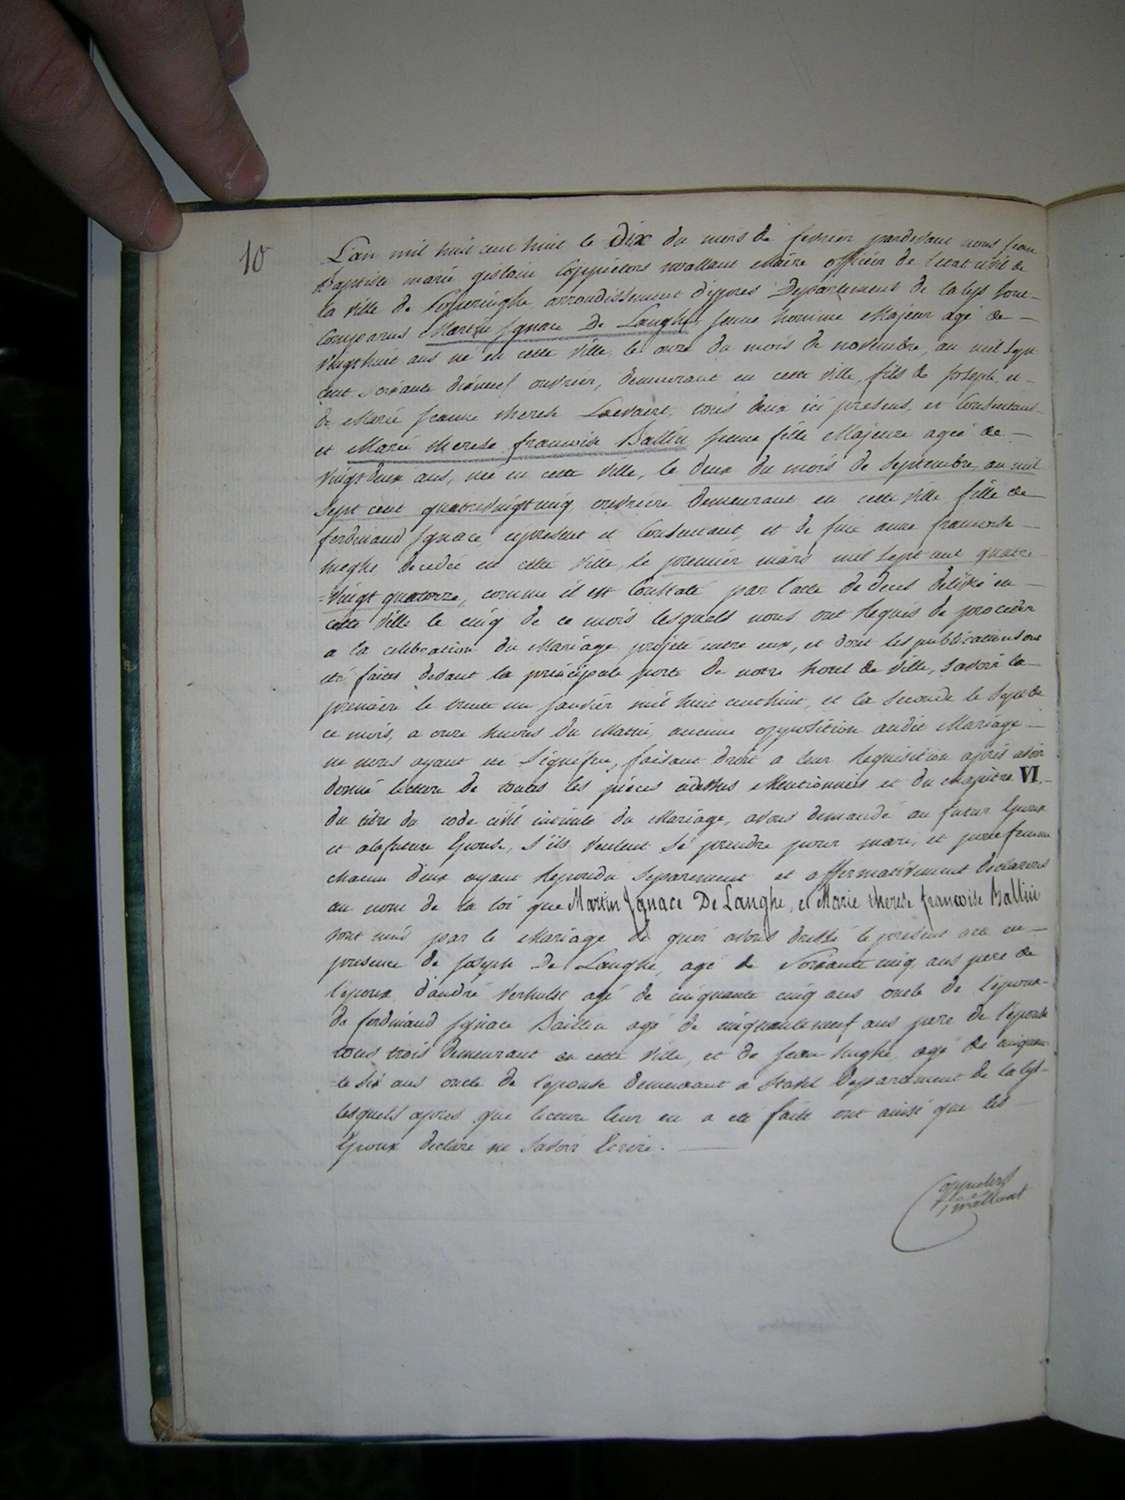 10
L'an mil huit cent huit le Dix du mois de fevrier pardevant nous jean
Baptiste marie geslain Coppieters wallant Maire officier de l'etat civil de
la ville de Poperinghe arrondissement d'ypres Departement de la lys sont
Comparus Martin Ignace De Langhe jeune homme Majeur agé de
vingthuit ans né en cette ville, le onze du mois de novembre, an mil sept
cent soixante dixneuf ouvrier, demeurant en cette ville, fils de Joseph et
de Marie jeanne therese tous deux ici presens, et Consentans
et Marie therese francoise Baillin jeune fille Majeure agée de
vingtdeux ans, né en cette ville, le deux du mois de Septembre an mil
Sept cent quatrevingtcinq ouvriere demeurant en cette ville fille de
ferdinand Ignace, cipresent et Consentant, et de feue anne francoise
hughe decedée en cette ville, le premier mars mil sept cent quatre
vingt quatorze, comme il est Constaté par l'acte de deces delivré en
cette ville le cinq de ce mois lesquels nous ont Requis de proceder
a la celebration du Mariage projeté entre eux, et dont les publications ont
eté faites devant la principale porte de notre hotel de ville, savoir la
premiere le trente un janvier mil huit cent huit, et la seconde le Sept de
ce mois, a onze heures du Matin, aucune opposition audit Mariage
ne nous ayant eté Signifiée, faisant droit a leur Requisition apres avoir
donné lecture de toutes les pieces cidessus Mentionnées et du chapitre VI
du titre du code civil intitulé du Mariage, avons demandé au futur Epoux
et alafuture Epouse, s'ils veulent se prendre pour mari, et pour femme
chacun d'eux ayant Repondu Separement et affirmativement declarons
au nom de la loi que Martin Ignace De Langhe, et Marie therese francoise Baillin
sont unis par le Mariage de quoi avons dressé le present acte en
presence de Joseph De Langhe, agé de Soixante cinq ans pere de
l'epoux d'andré Verhulst agé de cinquante cinq ans oncle de l'epoux
de ferdinand Ignace Baillin agé de cinquanteneuf ans pere de l'epouse
tous trois demeurant en cette ville, et de jean hughe, agé de cinquan
te Six ans oncle de l'epouse demeurant a Departement de la lys
lesquels apres que lecture leur en a eté faite ont ainsi que les
Epoux declaré ne savoir Ecrire.
Coppieters
wallant